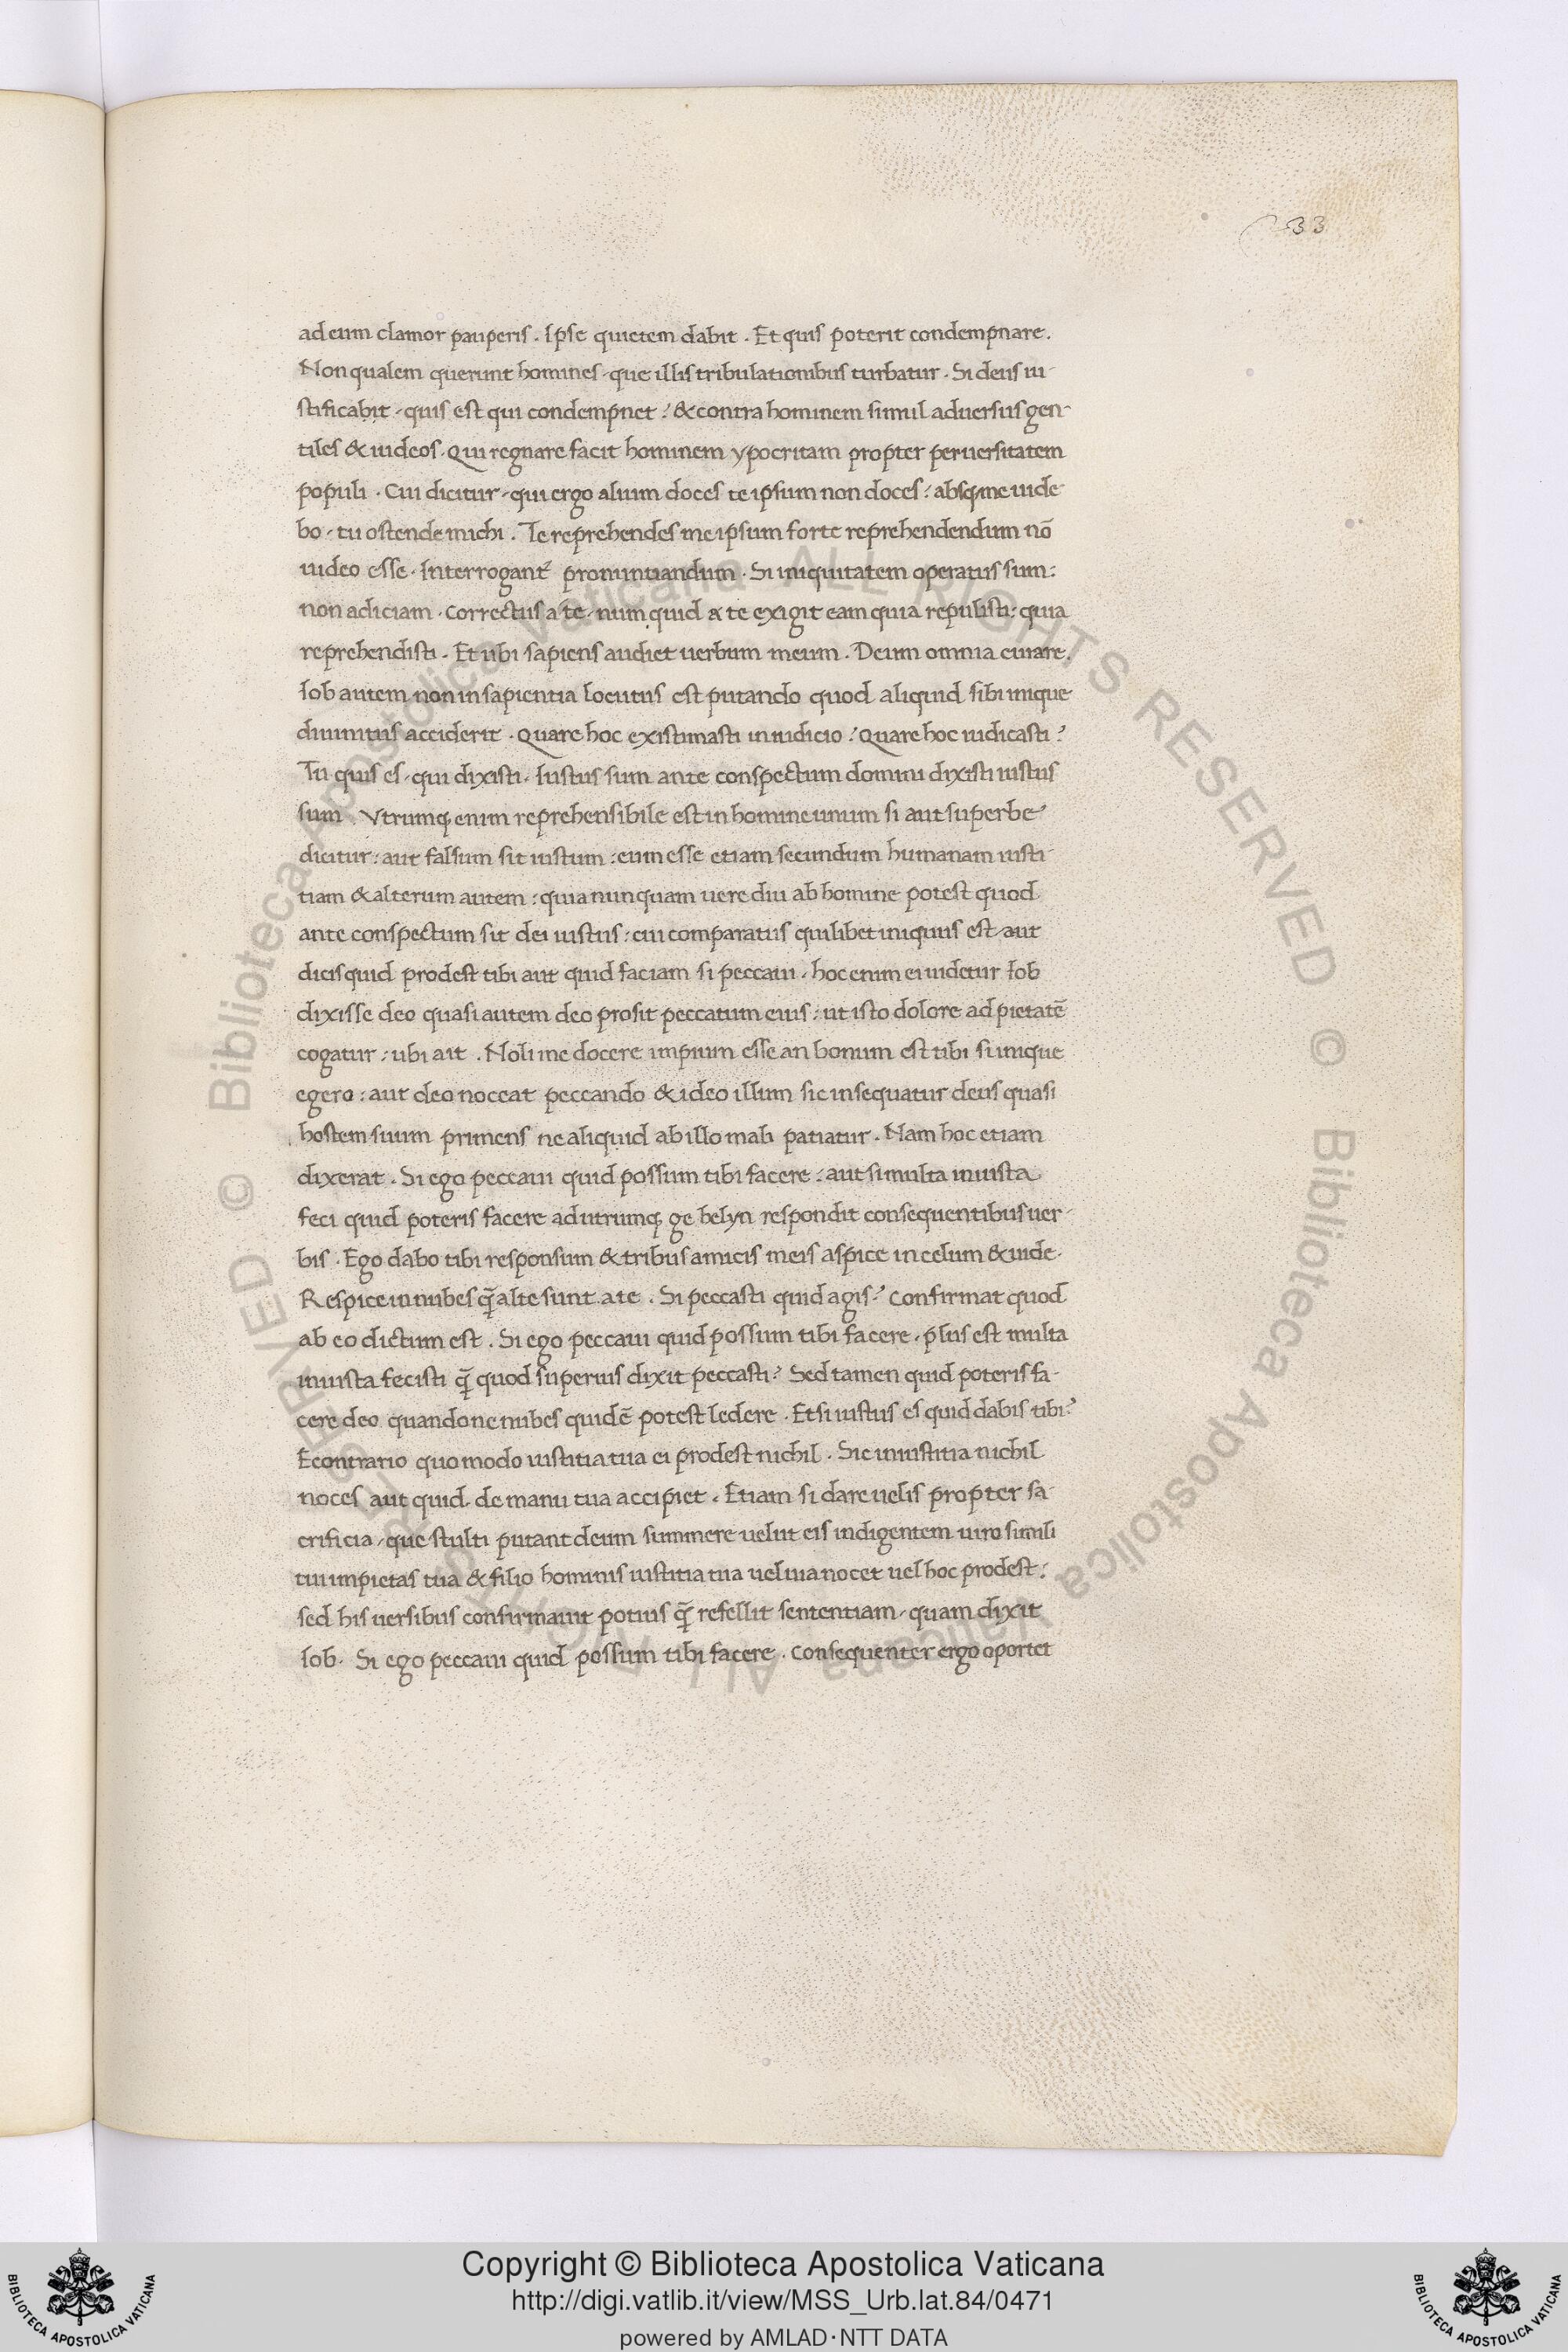 233
ad eum clamor pauperis. Ipse quietem dabit. Et quis poterit condempnare.
Non qualem querunt homines, que illis tribulationibus turbatur. Si deus iu-
stificabit, quis est qui condempnet? & contra hominem simul aduersus gen-
tiles & iudeos. Qui regnare facit hominem ypocritam propter peruersitatem
populi. Cui dicitur, qui ergo alium doces te ipsum non doces? absq; me uide-
bo, tu ostende michi. Te reprehendes me ipsum forte reprehendendum nō
uideo esse. Interrogant᷑ pronuntiandum. Si iniquitatem operatus sum:
non adiciam. Correctus a te, num quid a te exigit eam quia repulisti: quia
reprehendisti. Et ubi sapiens audiet uerbum meum. Deum omnia curare.
Iob autem non in sapientia locutus est putando quod aliquid sibi inique
diuinitus acciderit. Quare hoc existimasti in iudicio? Quare hoc iudicasti?
Tu quis es, qui dixisti. Iustus sum ante conspectum domini dixisti iustus
sum. Vtrumq; enim reprehensibile est in homine unum si aut superbe
dicitur: aut falsum sit iustum: eum esse etiam secundum humanam iusti-
tiam & alterum autem: quia nunquam uere diu ab homine potest quod
ante conspectum sit dei iustus: cui comparatus quilibet iniquus est, aut
dicis quid prodest tibi aut quid faciam si peccaui, hoc enim ei uidetur Iob
dixisse deo quasi autem deo prosit peccatum eius: ut isto dolore ad pietatē
cogatur: ubi ait. Noli me docere impium esse an bonum est tibi si inique
egero: aut deo noceat peccando & ideo illum sic insequatur deus quasi
hostem suum primens ne aliquid ab illo mali patiatur. Nam hoc etiam
dixerat. Si ego peccaui quid possum tibi facere: aut si multa iniusta
feci quid poteris facere ad utrumq; ge belyn respondit consequentibus uer-
bis. Ego dabo tibi responsum & tribus amicis meis aspice in celum & uide.
Respice in nubes q̄ alte sunt a te. Si peccasti quid agis? Confirmat quod
ab eo dictum est. Si ego peccaui quid possum tibi facere, plus est multa
iniusta fecisti q̄ quod superius dixit peccasti? Sed tamen quid poteris fa-
cere deo quando ne nubes quidē potest ledere. Et si iustus es quid dabis tibi?
Econtrario quo modo iustitia tua ei prodest nichil. Sic iniustitia nichil
noces aut quid de manu tua accipiet. Etiam si dare uelis propter sa-
crificia, que stulti putant deum summere uelut eis indigentem uiro simili
tui impietas tua & filio hominis iustitia tua uel iuia nocet uel hoc prodest:
sed his uersibus confirmauit potius q̄ refellit sententiam, quam dixit
Iob. Si ego peccaui quid possum tibi facere. Consequenter ergo oportet
© Biblioteca Apostolica Vaticana ALL RIGHTS RESERVED © Biblioteca Apostolica Vaticana ALL RIGHTS RESERVED
BIBLIOTECA APOSTOLICA VATICANA
Copyright © Biblioteca Apostolica Vaticana
http://digi.vatlib.it/view/MSS_Urb.lat.84/0471
powered by AMLAD·NTT DATA
BIBLIOTECA APOSTOLICA VATICANA